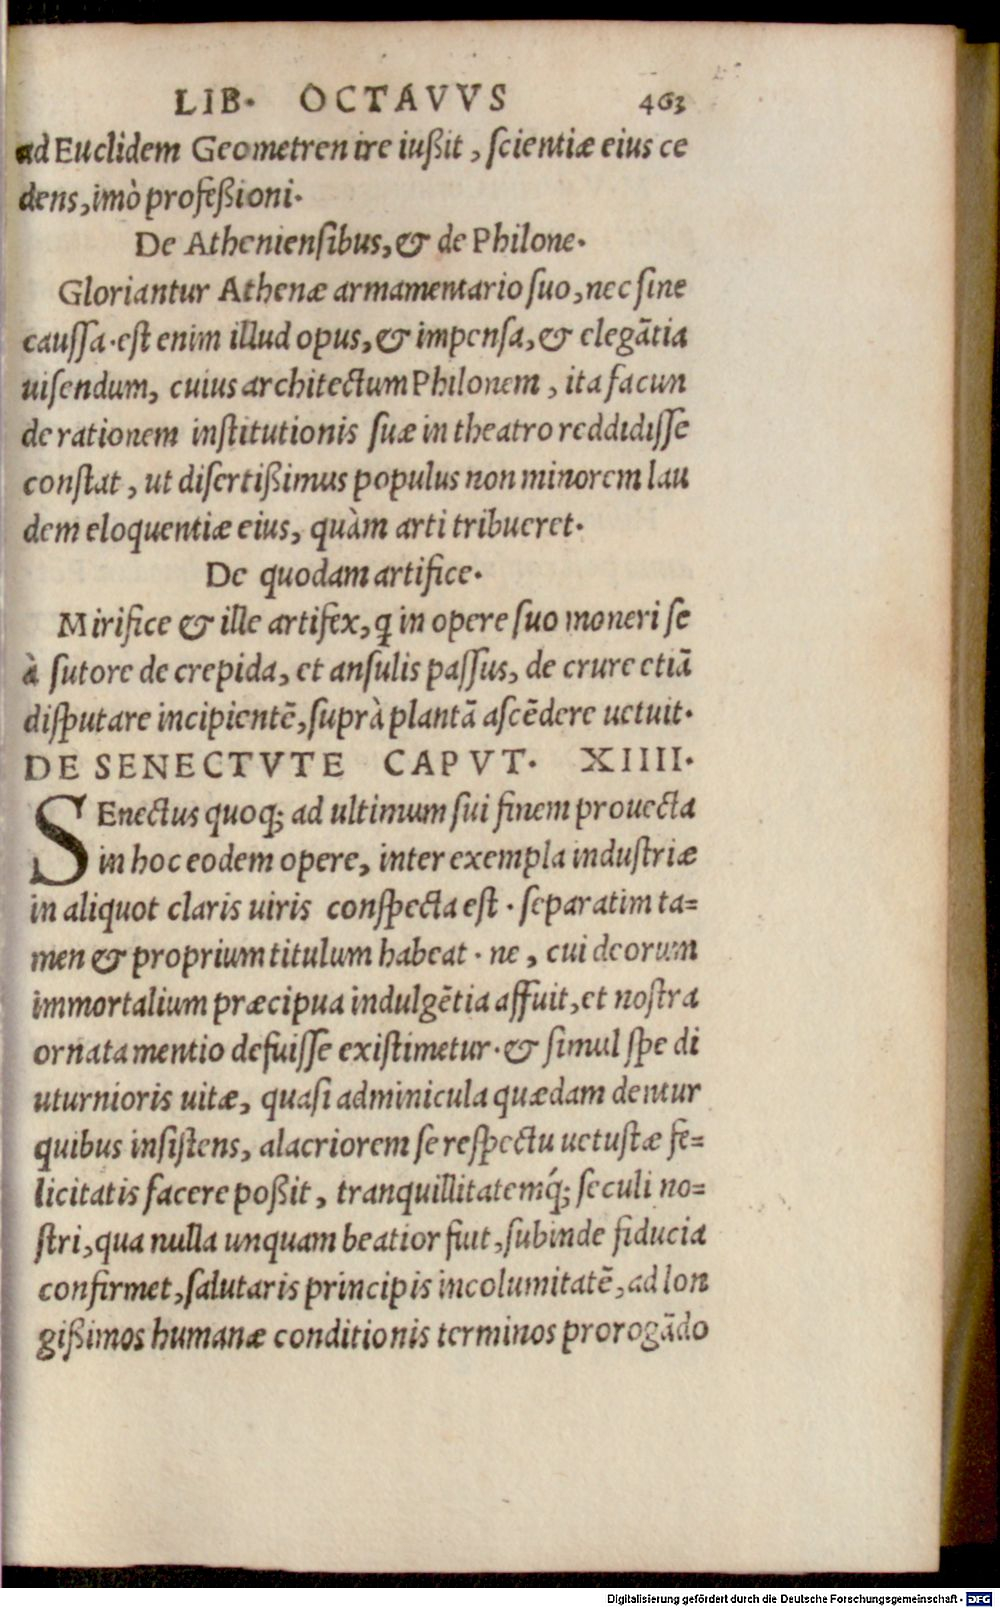 LIB. OCTAVVS 463
ad Euclidem Geometren ire iußit, scientiæ eius ce
dens, imò profeßioni.
De Atheniensibus, & de Philone.
Gloriantur Athenæ armamentario suo, nec sine
caussa. est enim illud opus, & impensa, & elegātia
uisendum, cuius architectum Philonem, ita facun
de rationem institutionis suæ in theatro reddidisse
constat, ut disertißimus populus non minorem lau
dem eloquentiæ eius, quàm arti tribueret.
De quodam artifice.
Mirifice & ille artifex, q in opere suo moneri se
à sutore de crepida, et ansulis passus, de crure etiā
disputare incipientē, suprà plantā ascēdere uetuit.
DE SENECTVTE CAPVT. XIIII.
SEnectus quoq; ad ultimum sui finem prouecta
in hoc eodem opere, inter exempla industriæ
in aliquot claris uiris conspecta est. separatim ta=
men & proprium titulum habeat. ne, cui deorum
immortalium præcipua indulgētia affuit, et nostra
ornata mentio defuisse existimetur. & simul spe di
uturnioris uitæ, quasi adminicula quædam dentur
quibus insistens, alacriorem se respectu uetustæ fe=
licitatis facere poßit, tranquillitatemq́; seculi no=
stri, qua nulla unquam beatior fuit, subinde fiducia
confirmet, salutaris principis incolumitatē, ad lon
gißimos humanæ conditionis terminos prorogādo
Digitalisierung gefördert durch die Deutsche Forschungsgemeinschaft - DFG